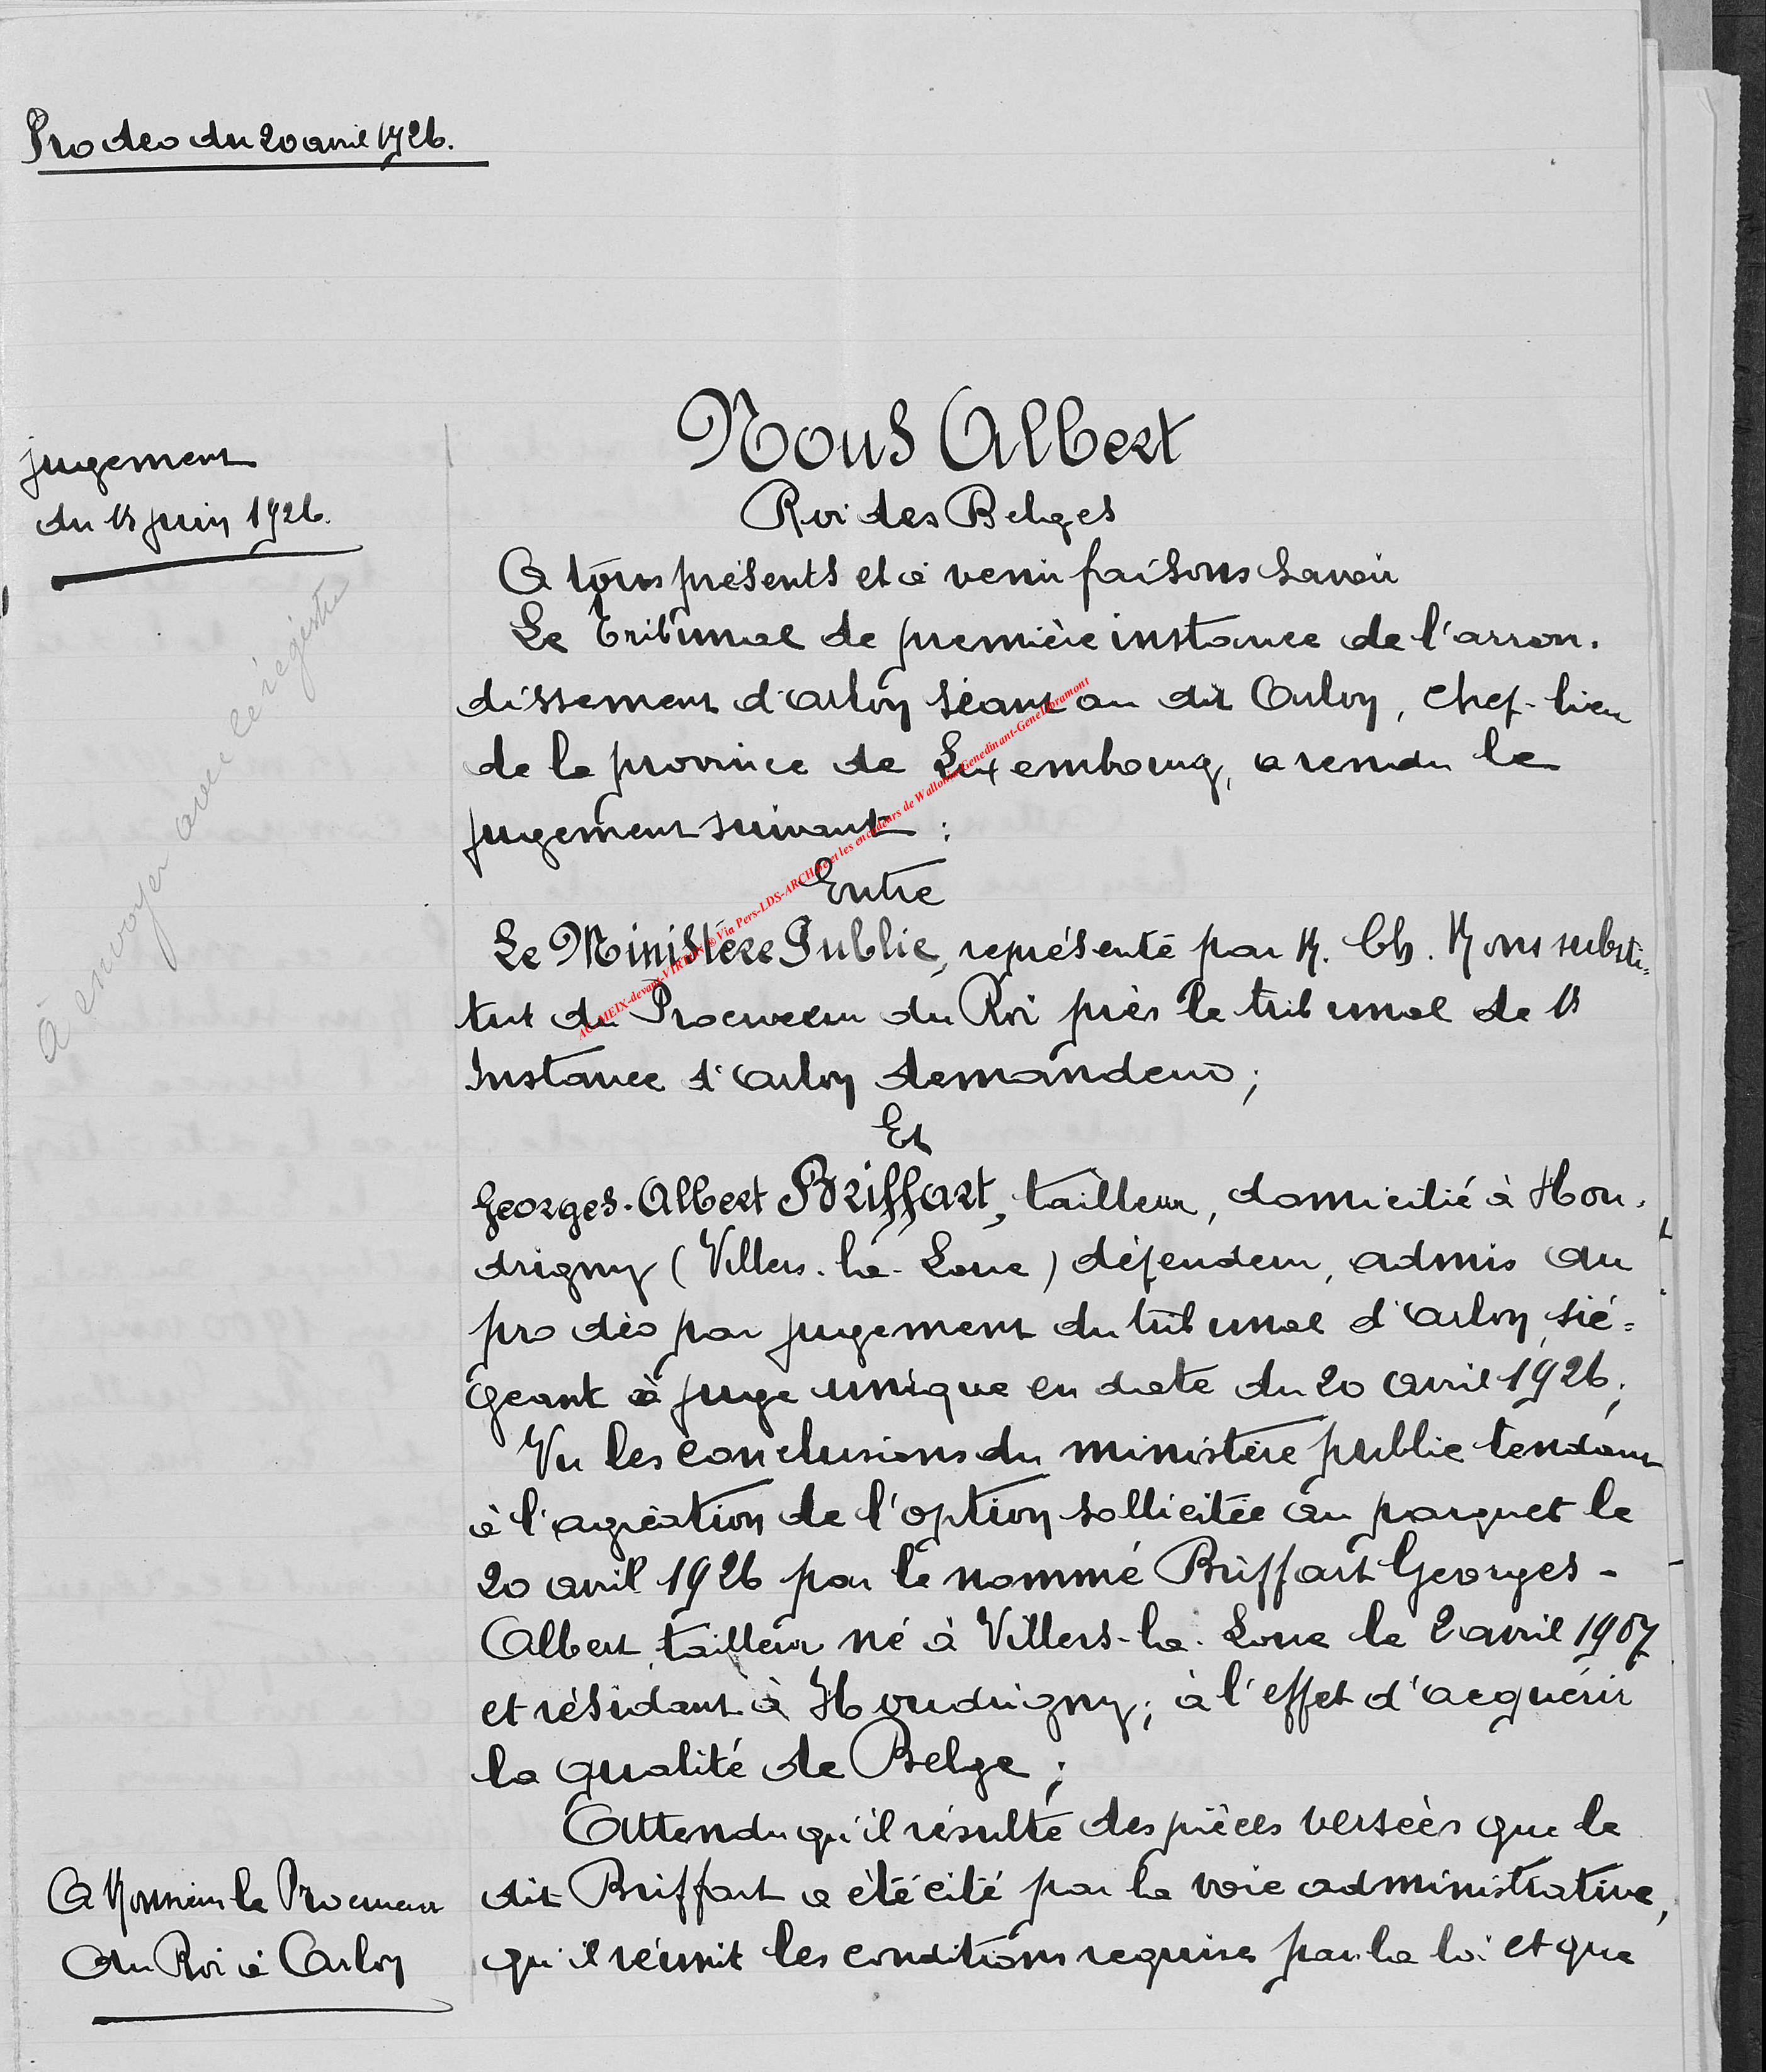 Pro deo du 20 avril 1926.
jugement
du 15 juin 1926.
à envoyer avec le régistre
Nous Albert
Roi des Belges
A tous présents et à venir faisons savoir
Le tribunal de première instance de l'arron-
dissement d'Arlon séant au dit Arlon, chef-lieu
de la province de Luxembourg, a rendu le
jugement suivant :
Entre
Le Ministère Public, représenté par M. Ch. substi=
tut du Procureur du Roi près le tribunal de
Instance d'Arlon demandeur ;
Et
Georges-Albert Briffart, tailleur, domicilié à Hou-
drigny (Villers-la-Loue) défendeur, admis au
pro déo par jugement du tribunal d'Arlon, sié=
geant à juge unique en date du 20 avril 1926 ;
Vu les conclusions du ministère public tendant
à l'agréation de l'option sollicitée au parquet le
20 avril 1926 par le nommé Briffart Georges-
Albert, tailleur né à Villers-la-Loue le 2 avril 1907
et résidant à Houdrigny ; à l'effet d'acquérir
la qualité de Belge ;
Attendu qu'il résulte des pièces versées que le
dit Briffart a été cité par la voie administrative,
qu'il réunit les conditions requises par la loi et que
A Monsieur le Procureur
du Roi à Arlon